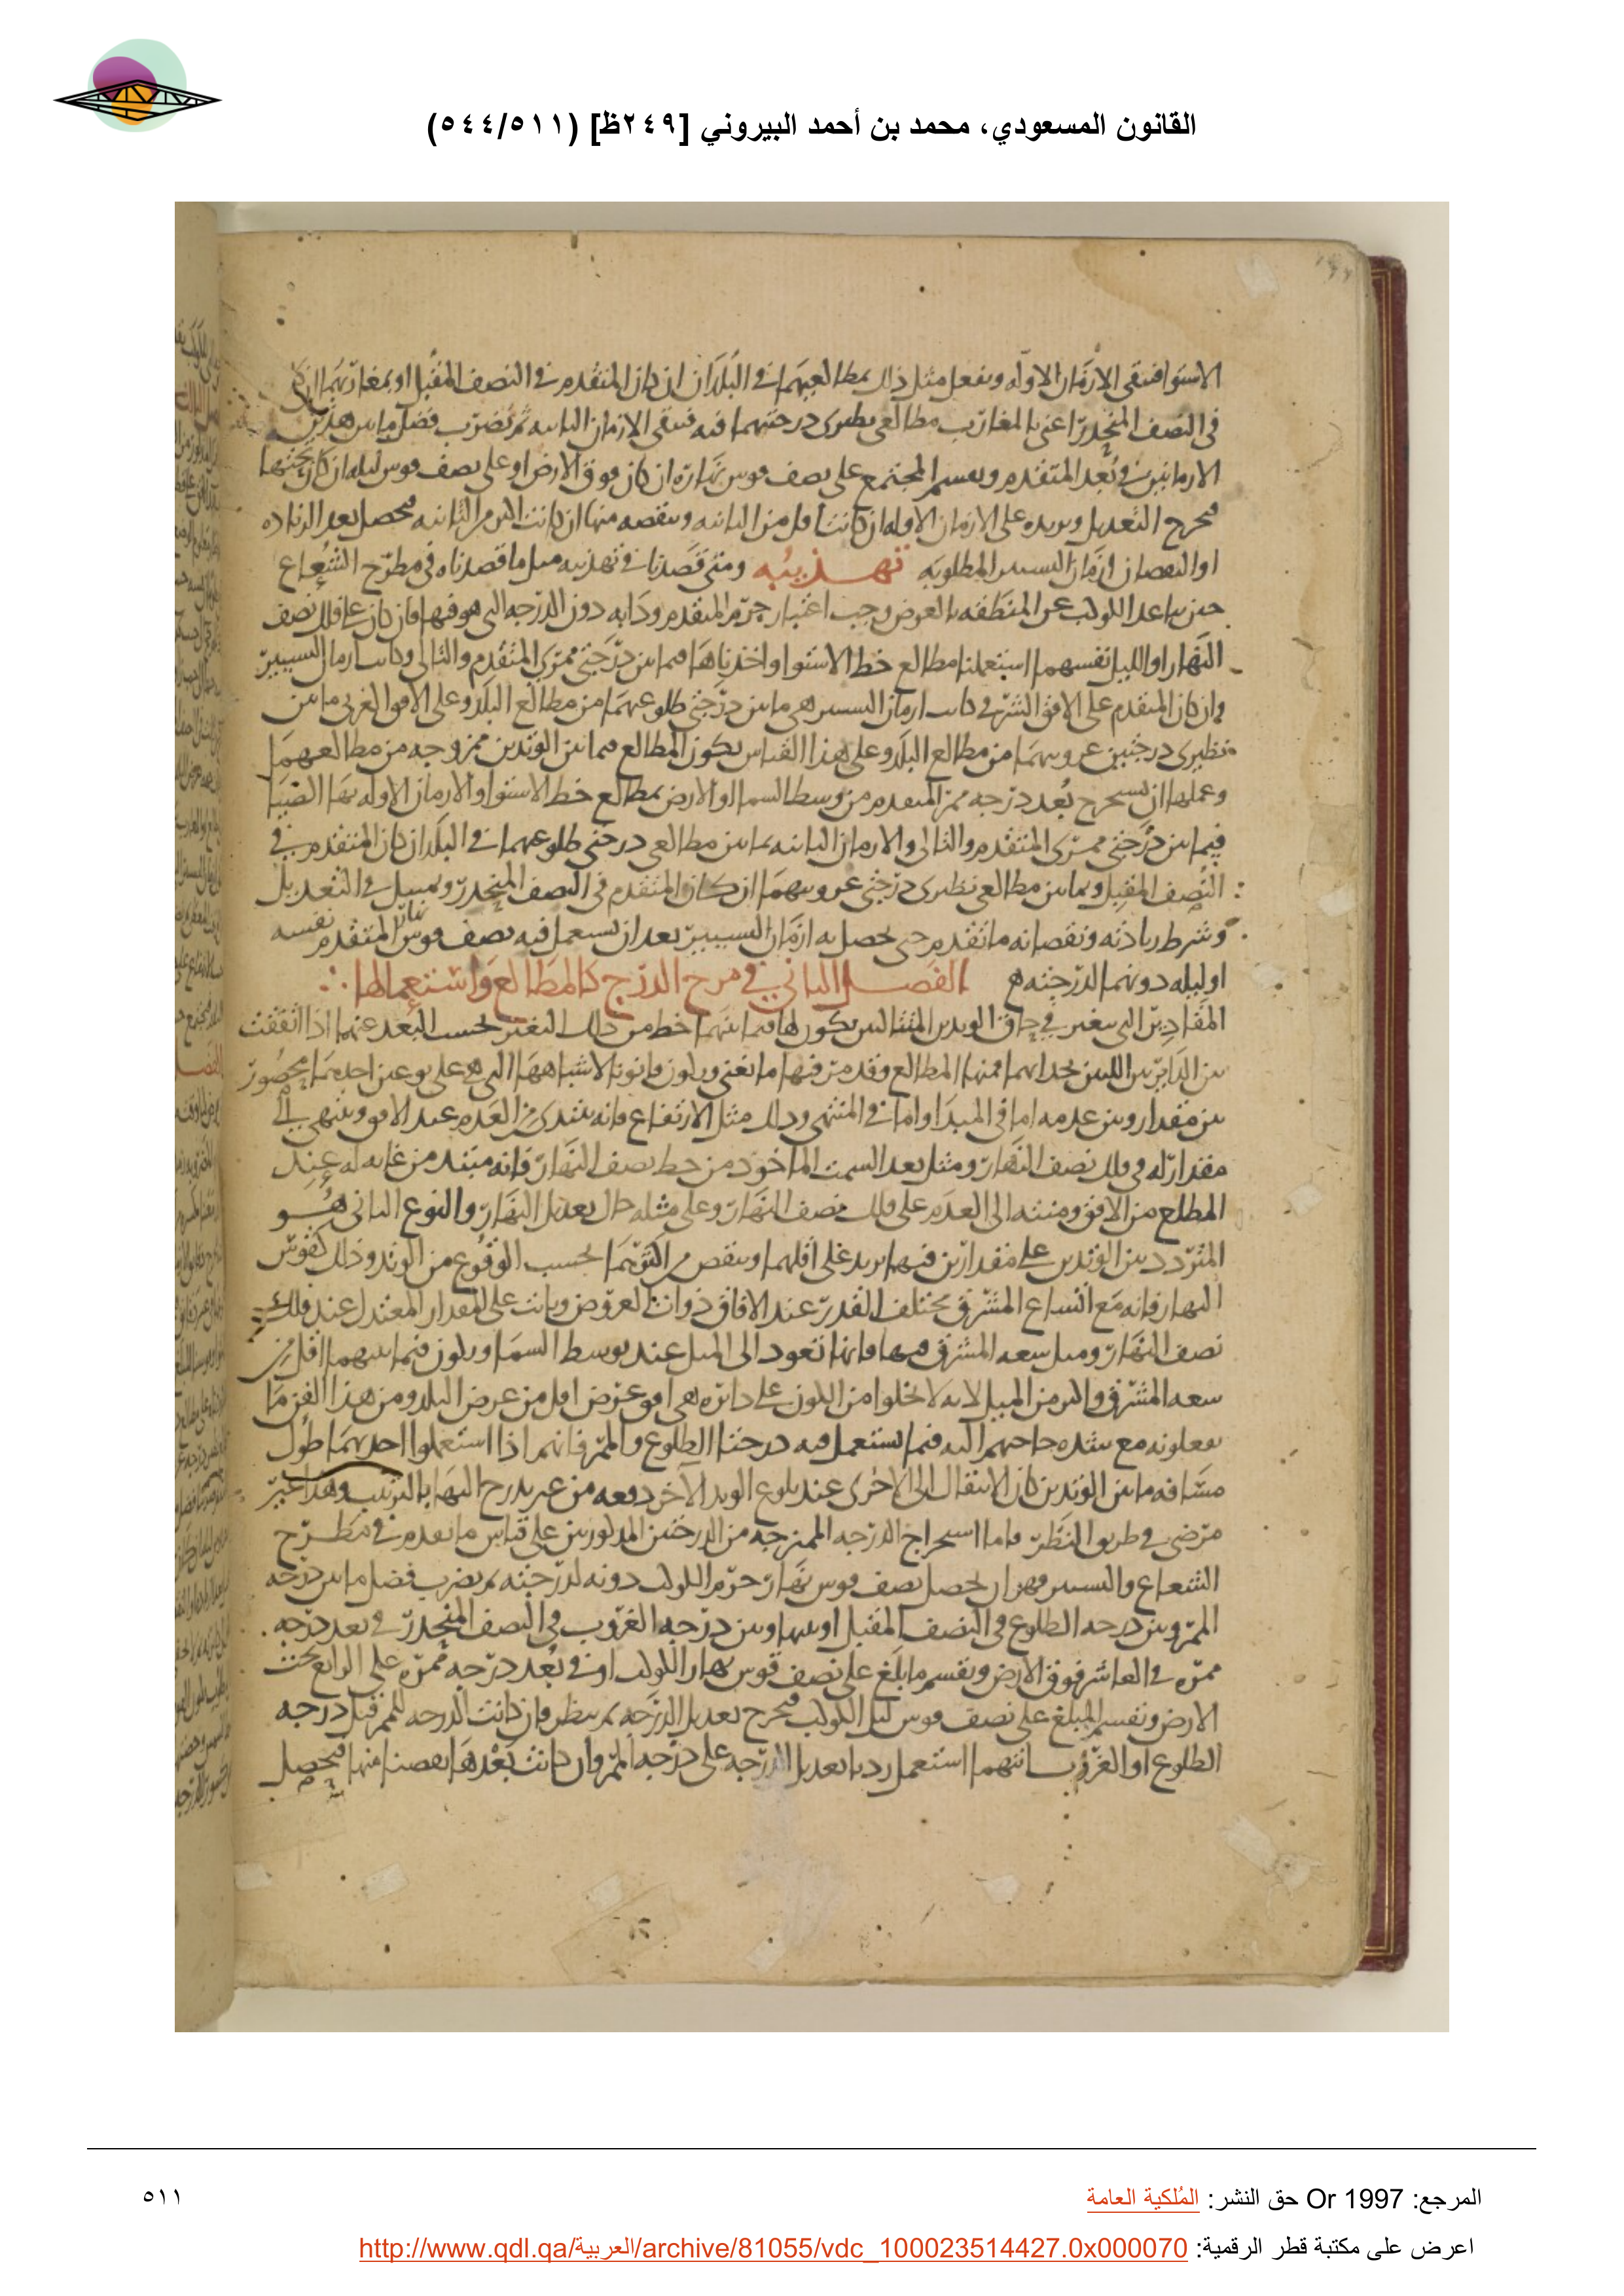 القانون المسعودي، محمد بن أحمد البيروني [٢٤٩ظ] (٥٤٤/٥١١)
الاستوا فتبقى الازمان الاوله ونفعل مثل ذلك بمطالعيهما في البلد ان كان المتقدم في النصف المقبل او بمغاربهما ان كان
في النصف المنحدر اعني بالمغارب مطالعي نظيري درجتيهما فيه فتبقى الازمان الثانيه ثم نضرب فضل ما بين هذين
الازمانين في بعد المتقدم ونقسم المجتمع على نصف قوس نهاره ان كان فوق الارض او على نصف قوس ليله ان كان تحتها
فيخرج التعديل ونزيده على الازمان الاوله ان كانت اقل من الثانيه وننقصه منها ان كانت اكثر من الثانيه فيحصل بعد الزياده
او النقصان ازمان التسيير المطلوبه تهذيبه ومتى قصدنا في تهذيبه مثل ما قصدناه في مطرح الشعاع
حين تباعد الكوكب عن المنطقه بالعرض وجب اعتبار جرم المتقدم وذاته دون الدرجه التي هو فيها فان كان على فلك نصف
النهار او الليل نفسهما استعملنا مطالع خط الاستوا واخذناها فيما بين درجتي ممري المتقدم والتالي وكانت ازمان التسيير
وان كان المتقدم على الافق الشرقي كانت ازمان التسيير هي ما بين درجتي طلوعهما من مطالع البلد وعلى الافق الغربي ما بين
نظيري درجتين غروبهما من مطالع البلد وعلى هذا القياس تكون المطالع فيما بين الوتدين ممزوجه من مطالعهما
وعملها ان نستخرج بعد درجه ممر المتقدم من وسط السما او الارض بمطالع خط الاستوا والازمان الاوله بها ايضا
فيما بين درجتي ممري المتقدم والتالي والازمان الثانيه بما بين مطالعي درجتي طلوعهما في البلد ان كان المتقدم في
النصف المقبل وبما بين مطالعي نظيري درجتي غروبهما ان كان المتقدم في النصف المنحدر ونميل في التعديل
وشرط زيادته ونقصانه ما تقدم حتى يحصل به ازمان التسيير بعد ان نستعمل فيه نصف قوس نهار المتقدم نفسه
او ليله دونهما لدرجته ه الفصل الثاني في مزج الدرج كالمطالع واستعمالها
المقادير التي تتغير في حاق الوتدين المتتاليين يكون لها فيما بينهما خط من ذلك التغير بحسب البعد عنهما اذا اتفقت
بين الدايرتين اللتين تحدانهما فمنها المطالع وقد مر فيها ما يغني ويكون قانونا لاشباهها التي هي على نوعين احدهما محصور
بين مقدار وبين عدمه اما في المبدا واما في المنتهى وذلك مثل الارتفاع فانه يبتدي من العدم عند الافق وينتهي الى
مقدار له في فلك نصف النهار ومثل بعد السمت الماخوذ من خط نصف النهار فانه مبتد من غايه له عند
المطلع من الافق ومنته الى العدم على فلك نصف النهار وعلى مثله حال تعديل النهار والنوع الثاني هو
المتردد بين الوتدين على مقدارين فيهما يزيد على اقلهما وينقص من اكثرهما بحسب الوقوع من الوتد وذلك كقوس
النهار فانه مع اتساع المشرق مختلف القدر عند الافاق ذوات العروض وثابت على المقدار المعتدل عند فلك
نصف النهار ومثل سعه المشرق فيها فانها تعود الى الميل عند توسط السما ويكون فيما بينهما اقل من
سعه المشرق واكثر من الميل لانه لا يخلوا من الكون على دائره هي افق عرض اقل من عرض البلد ومن هذا الفن ما
يفعلونه مع شده حاجتهم اليه فيما يستعمل فيه درجتا الطلوع والممر فانهم اذا استعملوا احديهما طول
مسافه ما بين الوتدين كان الانتقال الى الاخرى عند بلوغ الوتد الاخر دفعه من غير تدرج اليها بالترتيب وهذا غير
مرضي في طريق النظر فاما استخراج الدرجه الممتزجه من الدرجتين المذكورتين على قياس ما تقدم في مطرح
الشعاع والتسيير فهو ان يحصل نصف قوس نهار جرم الكوكب دونه لدرجته ثم يضرب فضل ما بين درجه
الممر وبين درجه الطلوع في النصف المقبل او بينها وبين درجه الغروب في النصف المنحدر في بعد درجه
ممره في العاشر فوق الارض ونقسم ما بلغ على نصف قوس نهار الكوكب او في بعد درجه ممره على الرابع تحت
الارض ونقسم المبلغ على نصف قوس ليل الكوكب فيخرج تعديل الدرجه ثم ينظر فان كانت الدرجه للممر قبل درجه
الطلوع او الغروب ايتهما استعمل زدنا تعديل الدرجه على درجه الممر وان كانت بعدها نقصنا منها فيحصل
المرجع: Or 1997 حق النشر: المُلكية العامة
٥١١
اعرض على مكتبة قطر الرقمية: http://www.qdl.qa/العربية/archive/81055/vdc_100023514427.0x000070